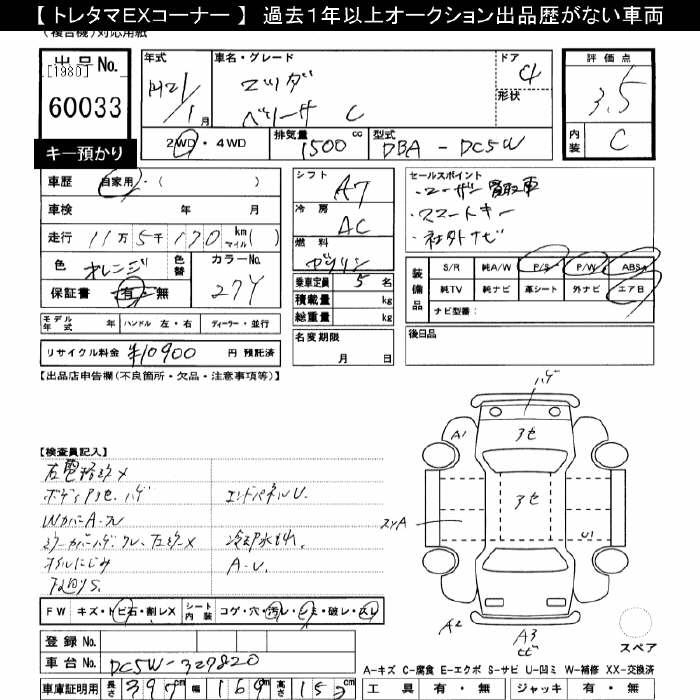 【 トレタマEXコーナー 】 過去1年以上オークション出品歴がない車両
(複合機)対応用紙
出品No.
[1980]
60033
キー預かり
年式
H21/1月
車名・グレード
マツダ
ベリーサ C
ドア
形状
評価点
3.5
内装
C
2WD・4WD
排気量
1500 cc
型式
DBA - DC5W
車歴 自家用・( )
車検 年 月
走行 11万5千170 km マイル( )
色 オレンジ 色替 カラーNo. 27Y
保証書 有・無
シフト A7
冷房 AC
燃料 ガソリン
乗車定員 5 名
積載量 kg
総重量 kg
名変期限
月 日
セールスポイント
・ユーザー買取車
・スマートキー
・社外ナビ
装備品
S/R 純A/W P/S P/W ABS
純TV 純ナビ 革シート 外ナビ エアB
ナビ型番:
後日品
モデル年式 年 ハンドル 左・右 ディーラー・並行
リサイクル料金 ¥10900 円 預託済
【出品店申告欄(不良箇所・欠品・注意事項等)】
【検査員記入】
ボディアセ、ハゲ エンドパネルU.
WカバーA・ワレ
冷却水モレ
オイルにじみ A・U.
下廻りS.
ハゲ
アセ
アセ
A1
U1
A2
A3
スペア
FW キズ・トビ石・割レX シート内装 コゲ・穴・汚レ・シミ・破レ・スレ
登録No.
車台No. DC5W-327820
車庫証明用 長さ 397 cm 幅 169 cm 高さ 153 cm
A-キズ C-腐食 E-エクボ S-サビ U-凹ミ W-補修 XX-交換済
工具 有・無 ジャッキ 有・無